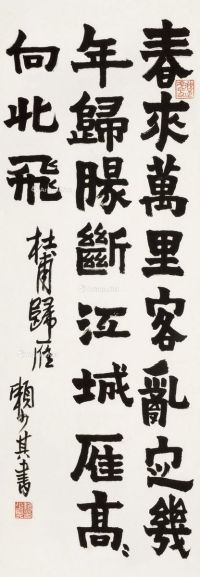 春來萬里客亂定幾
年歸腸斷江城雁高〻
向北飛
杜甫歸雁
賴少其書